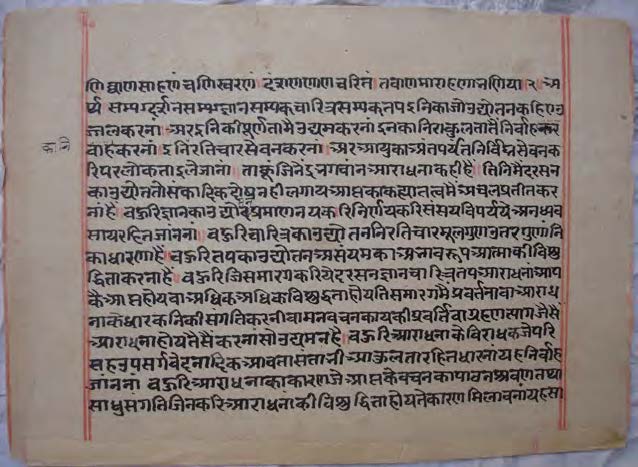 णिव्वाणसाहणं च णिच्छरणं दंसणणाणचरित्तं तवाणमाराहणा भणिया २ अ
र्थ सम्यग्दर्शन सम्यग्ज्ञान सम्यक्चारित्र सम्यक्तप इनिका जो उद्योतन कहिए उ
ज्जालकरनां अर इनिकी पूर्णता मै उद्यम करनां इनका निराकुलता तैं निर्वाह कर
वाहकरनां इ निरतिचार सेवन करनां अर आयुका अंतपर्यंत निर्विघ्न सेवन क
रि परलोकतांइ लेजानां ताकूं जिनेंद्र भगवान आराधना कही है तिनिमें दरसन
का उद्योत तौ संकादिक दोष नही लगाय आप्तका कह्या तत्वमें अचल प्रतीत कर
नां है बहुरि ज्ञानका उद्योत प्रमाण नय करि निर्णय करि संसय विपर्यय अनध्यव
साय रहित जाननां बहुरि चारित्रका उद्योतन निरतिचार मूलगुण उत्तरगुणनि
का धारणा है बहुरि तपका उद्योतन असंयमका अभावरूप आत्माकी विशु
द्धिता करना है बहुरि जिस मारग करि ये दरसन ज्ञान चारित्र तप आराधना आप
कै प्राप्त होय वा अधिक अधिक विशुद्धता होय तिस मारगमैं प्रवर्तना वा आराध
नाके धारकनिकी संगति करनी वा मन वचन कायकी प्रवर्ति वा ग्रहण त्याग जैसैं
आराधना होय तैसैं करनां सो उद्यमन है बहुरि आराधनाके विराधक जे परि
षह उपसर्ग वेदनादिक आवता संतां भी आकुलता रहित धारना यह निर्वाह
जाननां बहुरि आराधनाका कारण जे आप्तके वचनका पठन श्रवण तथा
साधुसंगति जिनकरि आराधनांकी विशुद्धिता होय ते कारण मिलावनां यह सा